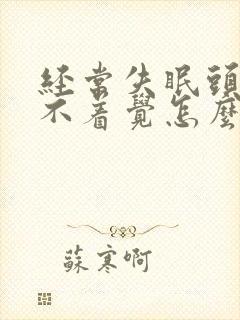 經常失眠頭
不着覺怎麼
蘇寒啊